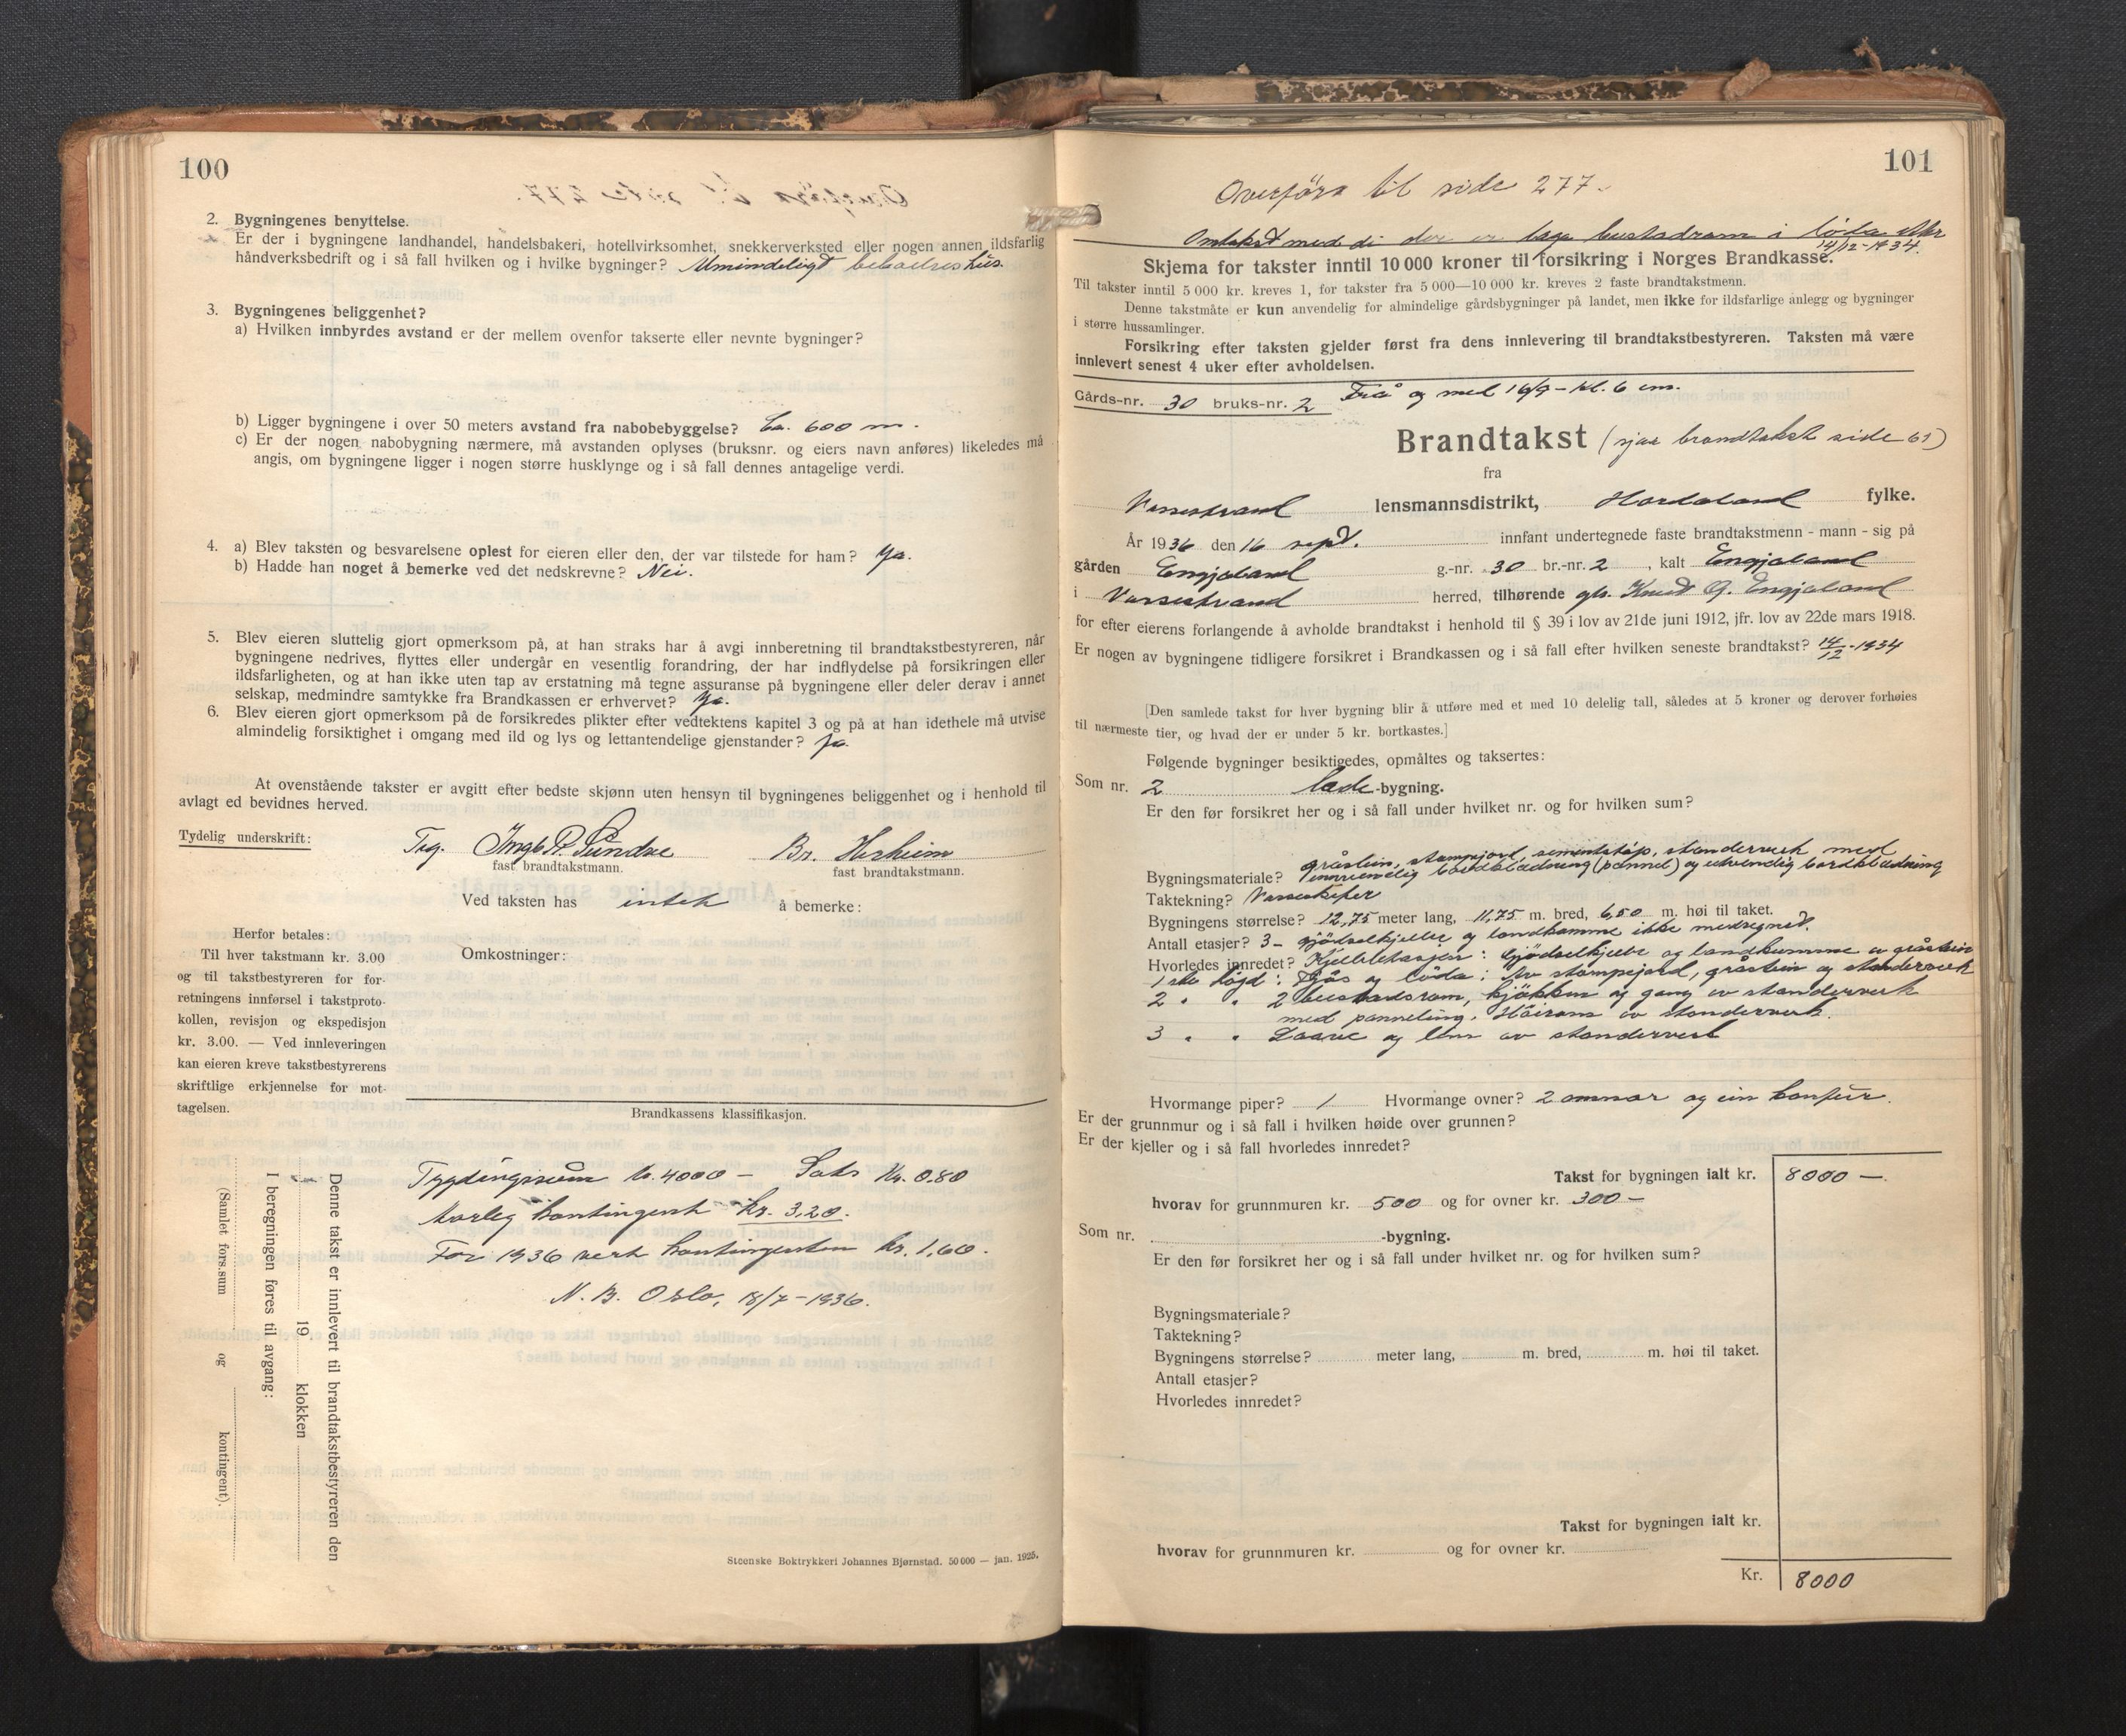 100
2. Bygningenes benyttelse.
Er der i bygningene landhandel, handelsbakeri, hotellvirksomhet, snekkerverksted eller nogen annen ildsfarlig
håndverksbedrift og i så fall hvilken og i hvilke bygninger? Almindeligt hus.
3. Bygningenes beliggenhet?
a) Hvilken innbyrdes avstand er der mellem ovenfor takserte eller nevnte bygninger?
b) Ligger bygningene i over 50 meters avstand fra nabobebyggelse? Ca. 600 m.
c) Er der nogen nabobygning nærmere, må avstanden oplyses (bruksnr. og eiers navn anføres) likeledes må
angis, om bygningene ligger i nogen større husklynge og i så fall dennes antagelige verdi.
4. a) Blev taksten og besvarelsene oplest for eieren eller den, der var tilstede for ham? Ja.
b) Hadde han noget å bemerke ved det nedskrevne? Nei.
5. Blev eieren sluttelig gjort opmerksom på, at han straks har å avgi innberetning til brandtakstbestyreren, når
bygningene nedrives, flyttes eller undergår en vesentlig forandring, der har indflydelse på forsikringen eller
ildsfarligheten, og at han ikke uten tap av erstatning må tegne assuranse på bygningene eller deler derav i annet
selskap, medmindre samtykke fra Brandkassen er erhvervet? Ja.
6. Blev eieren gjort opmerksom på de forsikredes plikter efter vedtektens kapitel 3 og på at han idethele må utvise
almindelig forsiktighet i omgang med ild og lys og lettantendelige gjenstander? Ja.
At ovenstående takster er avgitt efter bedste skjønn uten hensyn til bygningenes beliggenhet og i henhold til
avlagt ed bevidnes herved.
Tydelig underskrift: Ingb. P. Sundve Br. Herheim
fast brandtakstmann. fast brandtakstmann.
Ved taksten has intet å bemerke:
Herfor betales:
Til hver takstmann kr. 3.00
og til takstbestyreren for for-
retningens innførsel i takstproto-
kollen, revisjon og ekspedisjon
kr. 3.00. — Ved innleveringen
kan eieren kreve takstbestyrerens
skriftlige erkjennelse for mot-
tagelsen.
Omkostninger:
Brandkassens klassifikasjon.
Tryggingssum kr. 4000 — Sats kr. 0.80
Aarleg kontingent kr. 3,20.
For 1936 vert kontingenten kr. 1,60.
N. B. Oslo, 18/7-1936.
Denne takst er innlevert til brandtakstbestyreren den
19 klokken
I beregningen føres til avgang:
(Samlet fors.sum og kontingent).
Steenske Boktrykkeri Johannes Bjørnstad. 50 000 — jan. 1925.
101
Overføra til side 277.
Omtakst med di der er laga bustadrom i løda etter
14/12-1934.
Skjema for takster inntil 10 000 kroner til forsikring i Norges Brandkasse.
Til takster inntil 5 000 kr. kreves 1, for takster fra 5 000—10 000 kr. kreves 2 faste brandtakstmenn.
Denne takstmåte er kun anvendelig for almindelige gårdsbygninger på landet, men ikke for ildsfarlige anlegg og bygninger
i større hussamlinger.
Forsikring efter taksten gjelder først fra dens innlevering til brandtakstbestyreren. Taksten må være
innlevert senest 4 uker efter avholdelsen.
Gårds-nr. 30 bruks-nr. 2 Frå og med 16/9 - kl. 6 em.
Brandtakst (sjaa brandtakst side 61)
fra
Vossestrand lensmannsdistrikt, Hordaland fylke.
År 1936 den 16 sept. innfant undertegnede faste brandtakstmenn - mann - sig på
gården Engjaland g.-nr. 30 br.-nr. 2, kalt Engjaland
i Vossestrand herred, tilhørende gbr. Knut G. Engjaland
for efter eierens forlangende å avholde brandtakst i henhold til § 39 i lov av 21de juni 1912, jfr. lov av 22de mars 1918.
Er nogen av bygningene tidligere forsikret i Brandkassen og i så fall efter hvilken seneste brandtakst? 14/12-1934
[Den samlede takst for hver bygning blir å utføre med et med 10 delelig tall, således at 5 kroner og derover forhøies
til nærmeste tier, og hvad der er under 5 kr. bortkastes.]
Følgende bygninger besiktigedes, opmåltes og taksertes:
Som nr. 2 løde-bygning.
Er den før forsikret her og i så fall under hvilket nr. og for hvilken sum?
gråstein, stampejord, sementstøp, standerverk med
Bygningsmateriale? innvendig bordklædning (pannel) og utvendig bordklædning
Taktekning? Vosseskifer
Bygningens størrelse? 12,75 meter lang, 11,75 m. bred, 6,50 m. høi til taket.
Antall etasjer? 3 - gjødselkjellar og landkumme ikke medregnet.
Hvorledes innredet? Kjelleretasjen: Gjødselkjellar og landkumme av gråstein
1ste høgd: Fjøs og løda: Av stampejord, gråstein og standerverk
2 " " 2 bustadsrom, kjøkken og gang av standerverk
med panneling. Høirom av standerverk.
3 " " Laave og lem av standerverk
Hvormange piper? 1 Hvormange ovner? 2 omnar og ein komfur.
Er der grunnmur og i så fall i hvilken høide over grunnen?
Er der kjeller og i så fall hvorledes innredet?
Takst for bygningen ialt kr. 8000 —.
hvorav for grunnmuren kr. 500 og for ovner kr. 300 —
Som nr. -bygning.
Er den før forsikret her og i så fall under hvilket nr. og for hvilken sum?
Bygningsmateriale?
Taktekning?
Bygningens størrelse? meter lang, m. bred, m. høi til taket.
Antall etasjer?
Hvorledes innredet?
Takst for bygningen ialt kr.
hvorav for grunnmuren kr. og for ovner kr.
Kr. 8000